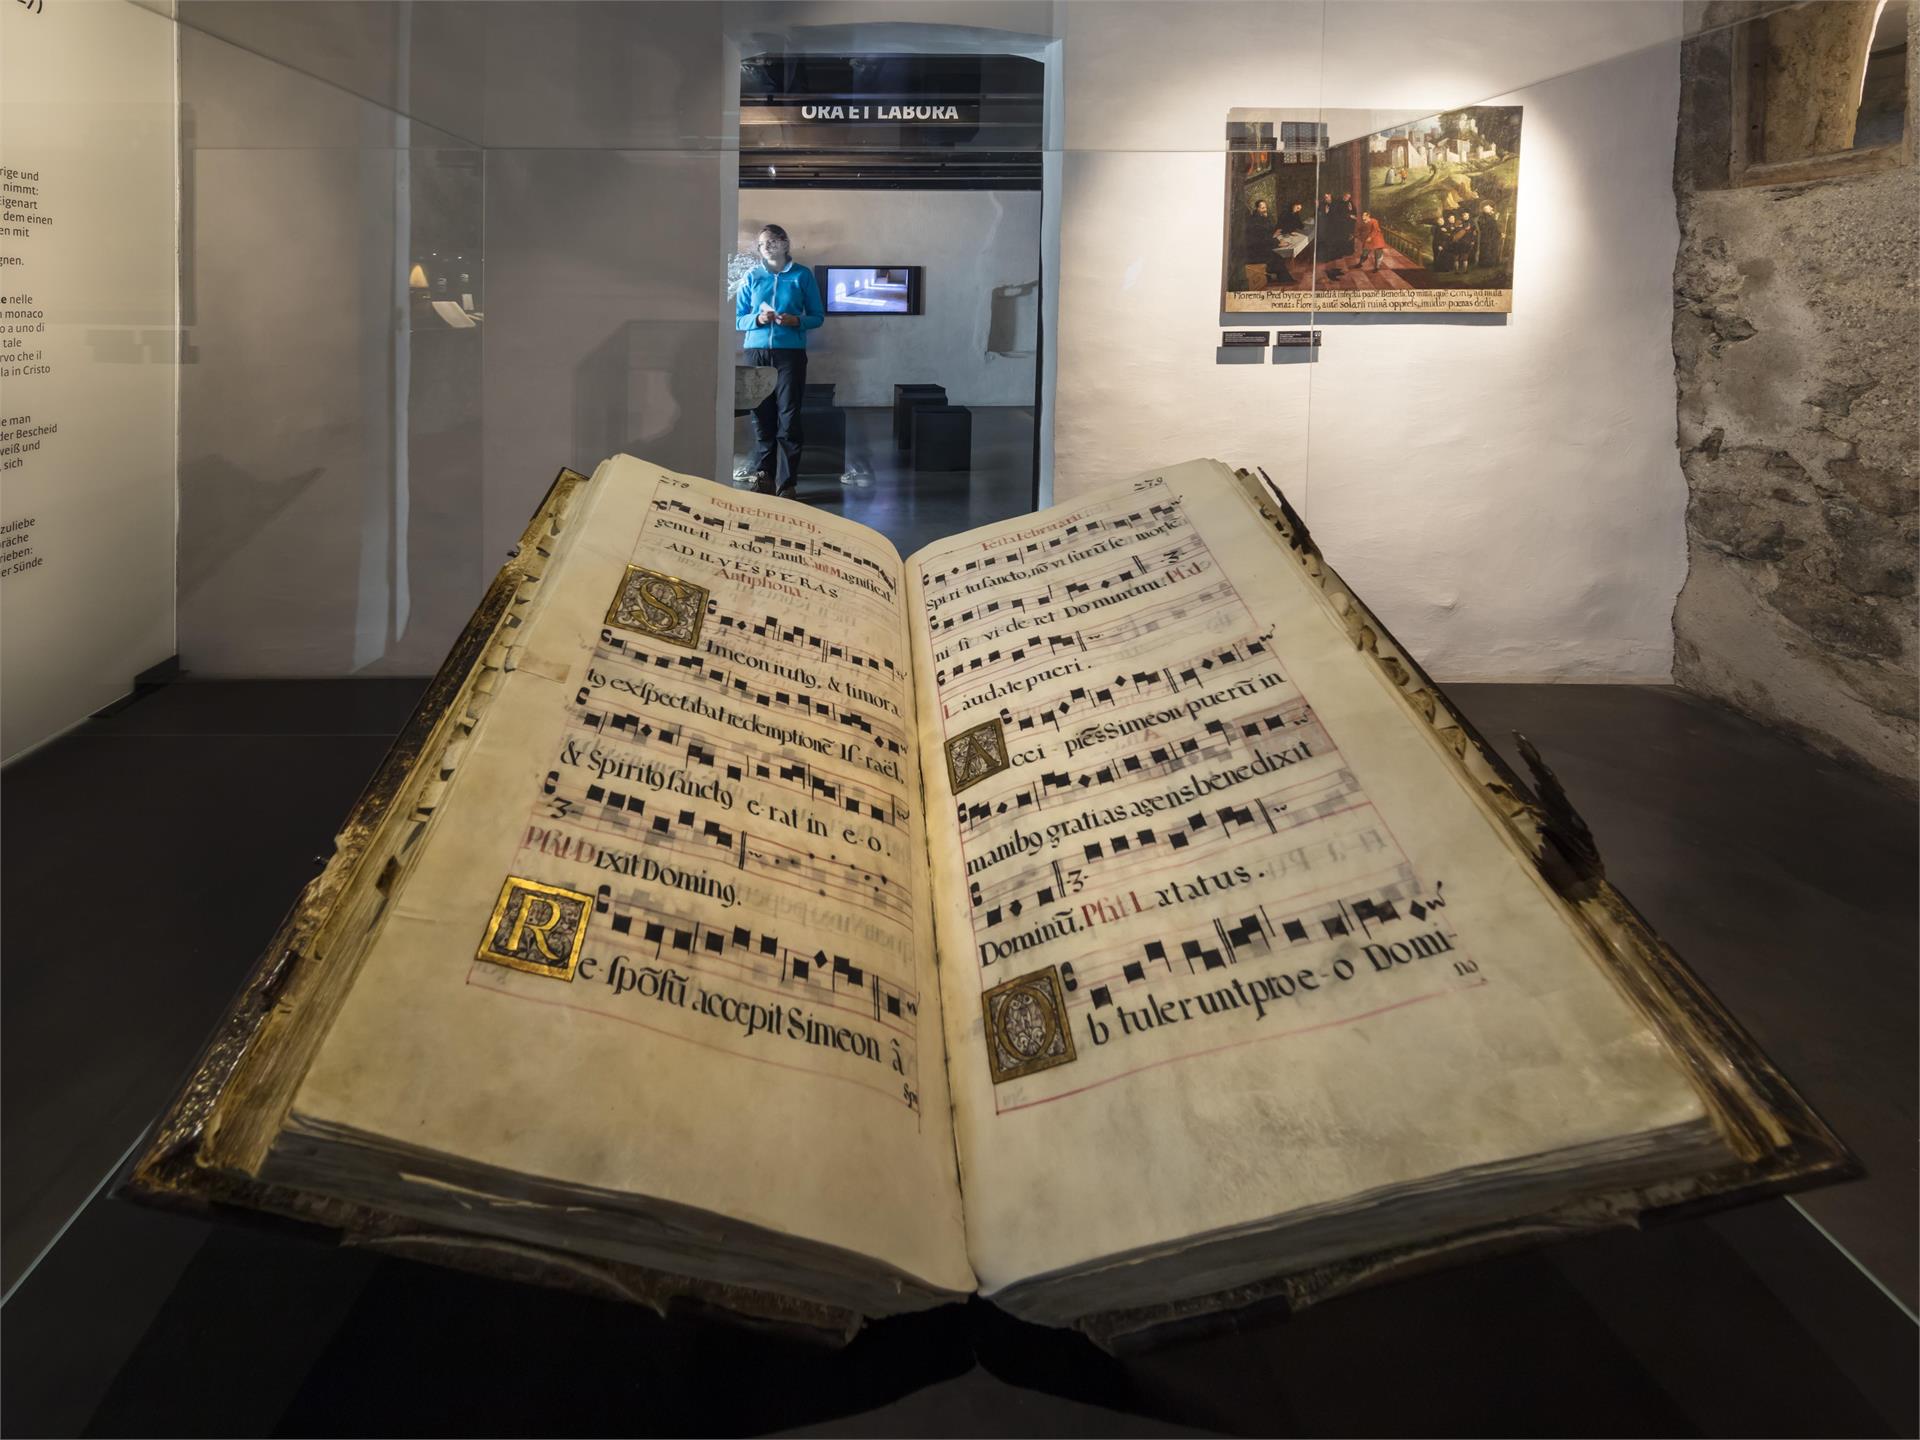 rige und
nimmt:
Eigenart
dem einen
en mit
gnen.
e nelle
n monaco
o a uno di
tale
rvo che il
la in Cristo
le man
der Bescheid
weiß und
, sich
zuliebe
präche
rieben:
er Sünde
ORA ET LABORA
ponat: Floren, aute solarii ruina oppreſs, inuidiæ poenas dedit.
278
Festa Februarij.
genu-it a-do-rauit. Cant. Magnificat.
AD II. VESPERAS
Antiphona.
SImeon iustꝯ, & timora
tꝯ exſpectabat redemptionē Iſ-raël,
& Spiritꝯ ſanctꝯ e-rat in e-o.
Pſal. Dixit Dominꝯ.
Re-ſpōſū accepit Simeon ā
Spi
279
Festa Februarii
Spi-ri-tu ſancto, nō vi ſurū ſe mortē
ni-ſi vi-de-ret Dominum. Pſal.
Laudate pueri.
Acci-piēs Simeon puerū in
manibꝯ gratias agens benedixit
Dominū. Pſal. Lætatus.
Ob tulerunt pro e-o Domi-
no